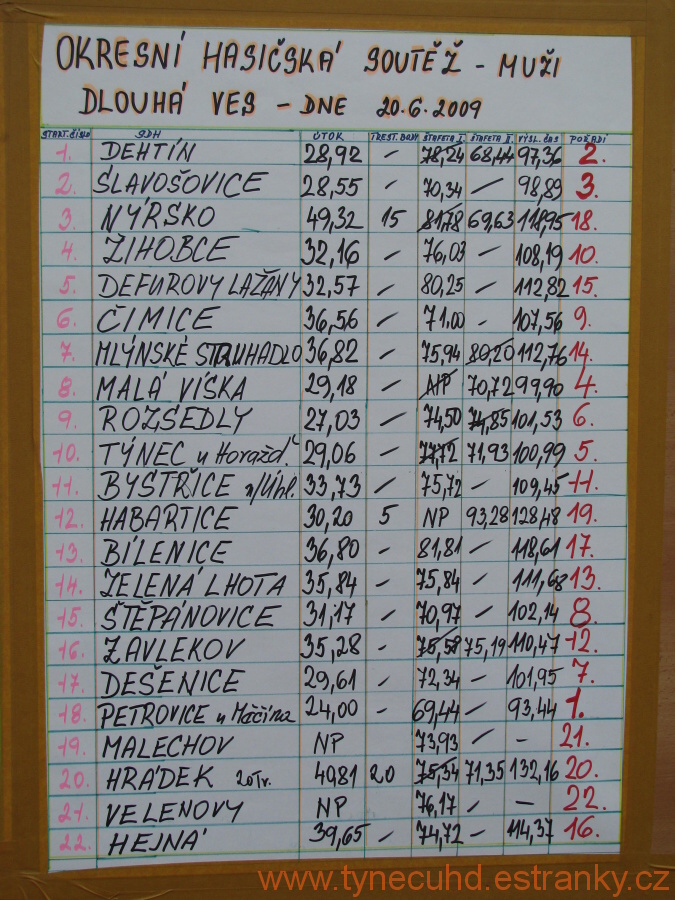 OKRESNÍ HASIČSKÁ SOUTĚŽ - MUŽI
DLOUHÁ VES - DNE 20.6.2009
START. ČÍSLO SDH ÚTOK TREST. BODY ŠTAFETA I. ŠTAFETA II. VÝSL. ČAS POŘADÍ
1. DEHTÍN 28,92 - 78,24 68,44 97,36 2.
2. SLAVOŠOVICE 28,55 - 70,34 - 98,89 3.
3. NÝRSKO 49,32 15 81,78 69,63 118,95 18.
4. ŽIHOBCE 32,16 - 76,03 - 108,19 10.
5. DEFUROVY LAŽANY 32,57 - 80,25 - 112,82 15.
6. ČIMICE 36,56 - 71,00 - 107,56 9.
7. MLÝNSKÉ STRUHADLO 36,82 - 75,94 80,20 112,76 14.
8. MALÁ VÍSKA 29,18 - NP 70,72 99,90 4.
9. ROZSEDLY 27,03 - 74,50 74,85 101,53 6.
10. TÝNEC u Horažď. 29,06 - 77,72 71,93 100,99 5.
11. BYSTŘICE n/Úhl. 33,73 - 75,72 - 109,45 11.
12. HABARTICE 30,20 5 NP 93,28 128,48 19.
13. BÍLENICE 36,80 - 81,81 - 118,61 17.
14. ZELENÁ LHOTA 35,84 - 75,84 - 111,68 13.
15. ŠTĚPÁNOVICE 31,17 - 70,97 - 102,14 8.
16. ZAVLEKOV 35,28 - 75,58 75,19 110,47 12.
17. DEŠENICE 29,61 - 72,34 - 101,95 7.
18. PETROVICE u Máčína 24,00 - 69,44 - 93,44 1.
19. MALECHOV NP 73,93 - - 21.
20. HRÁDEK 20Tr. 40,81 20 75,34 71,35 132,16 20.
21. VELENOVY NP 76,17 - - 22.
22. HEJNÁ 39,65 - 74,72 - 114,37 16.
www.tynecuhd.estranky.cz